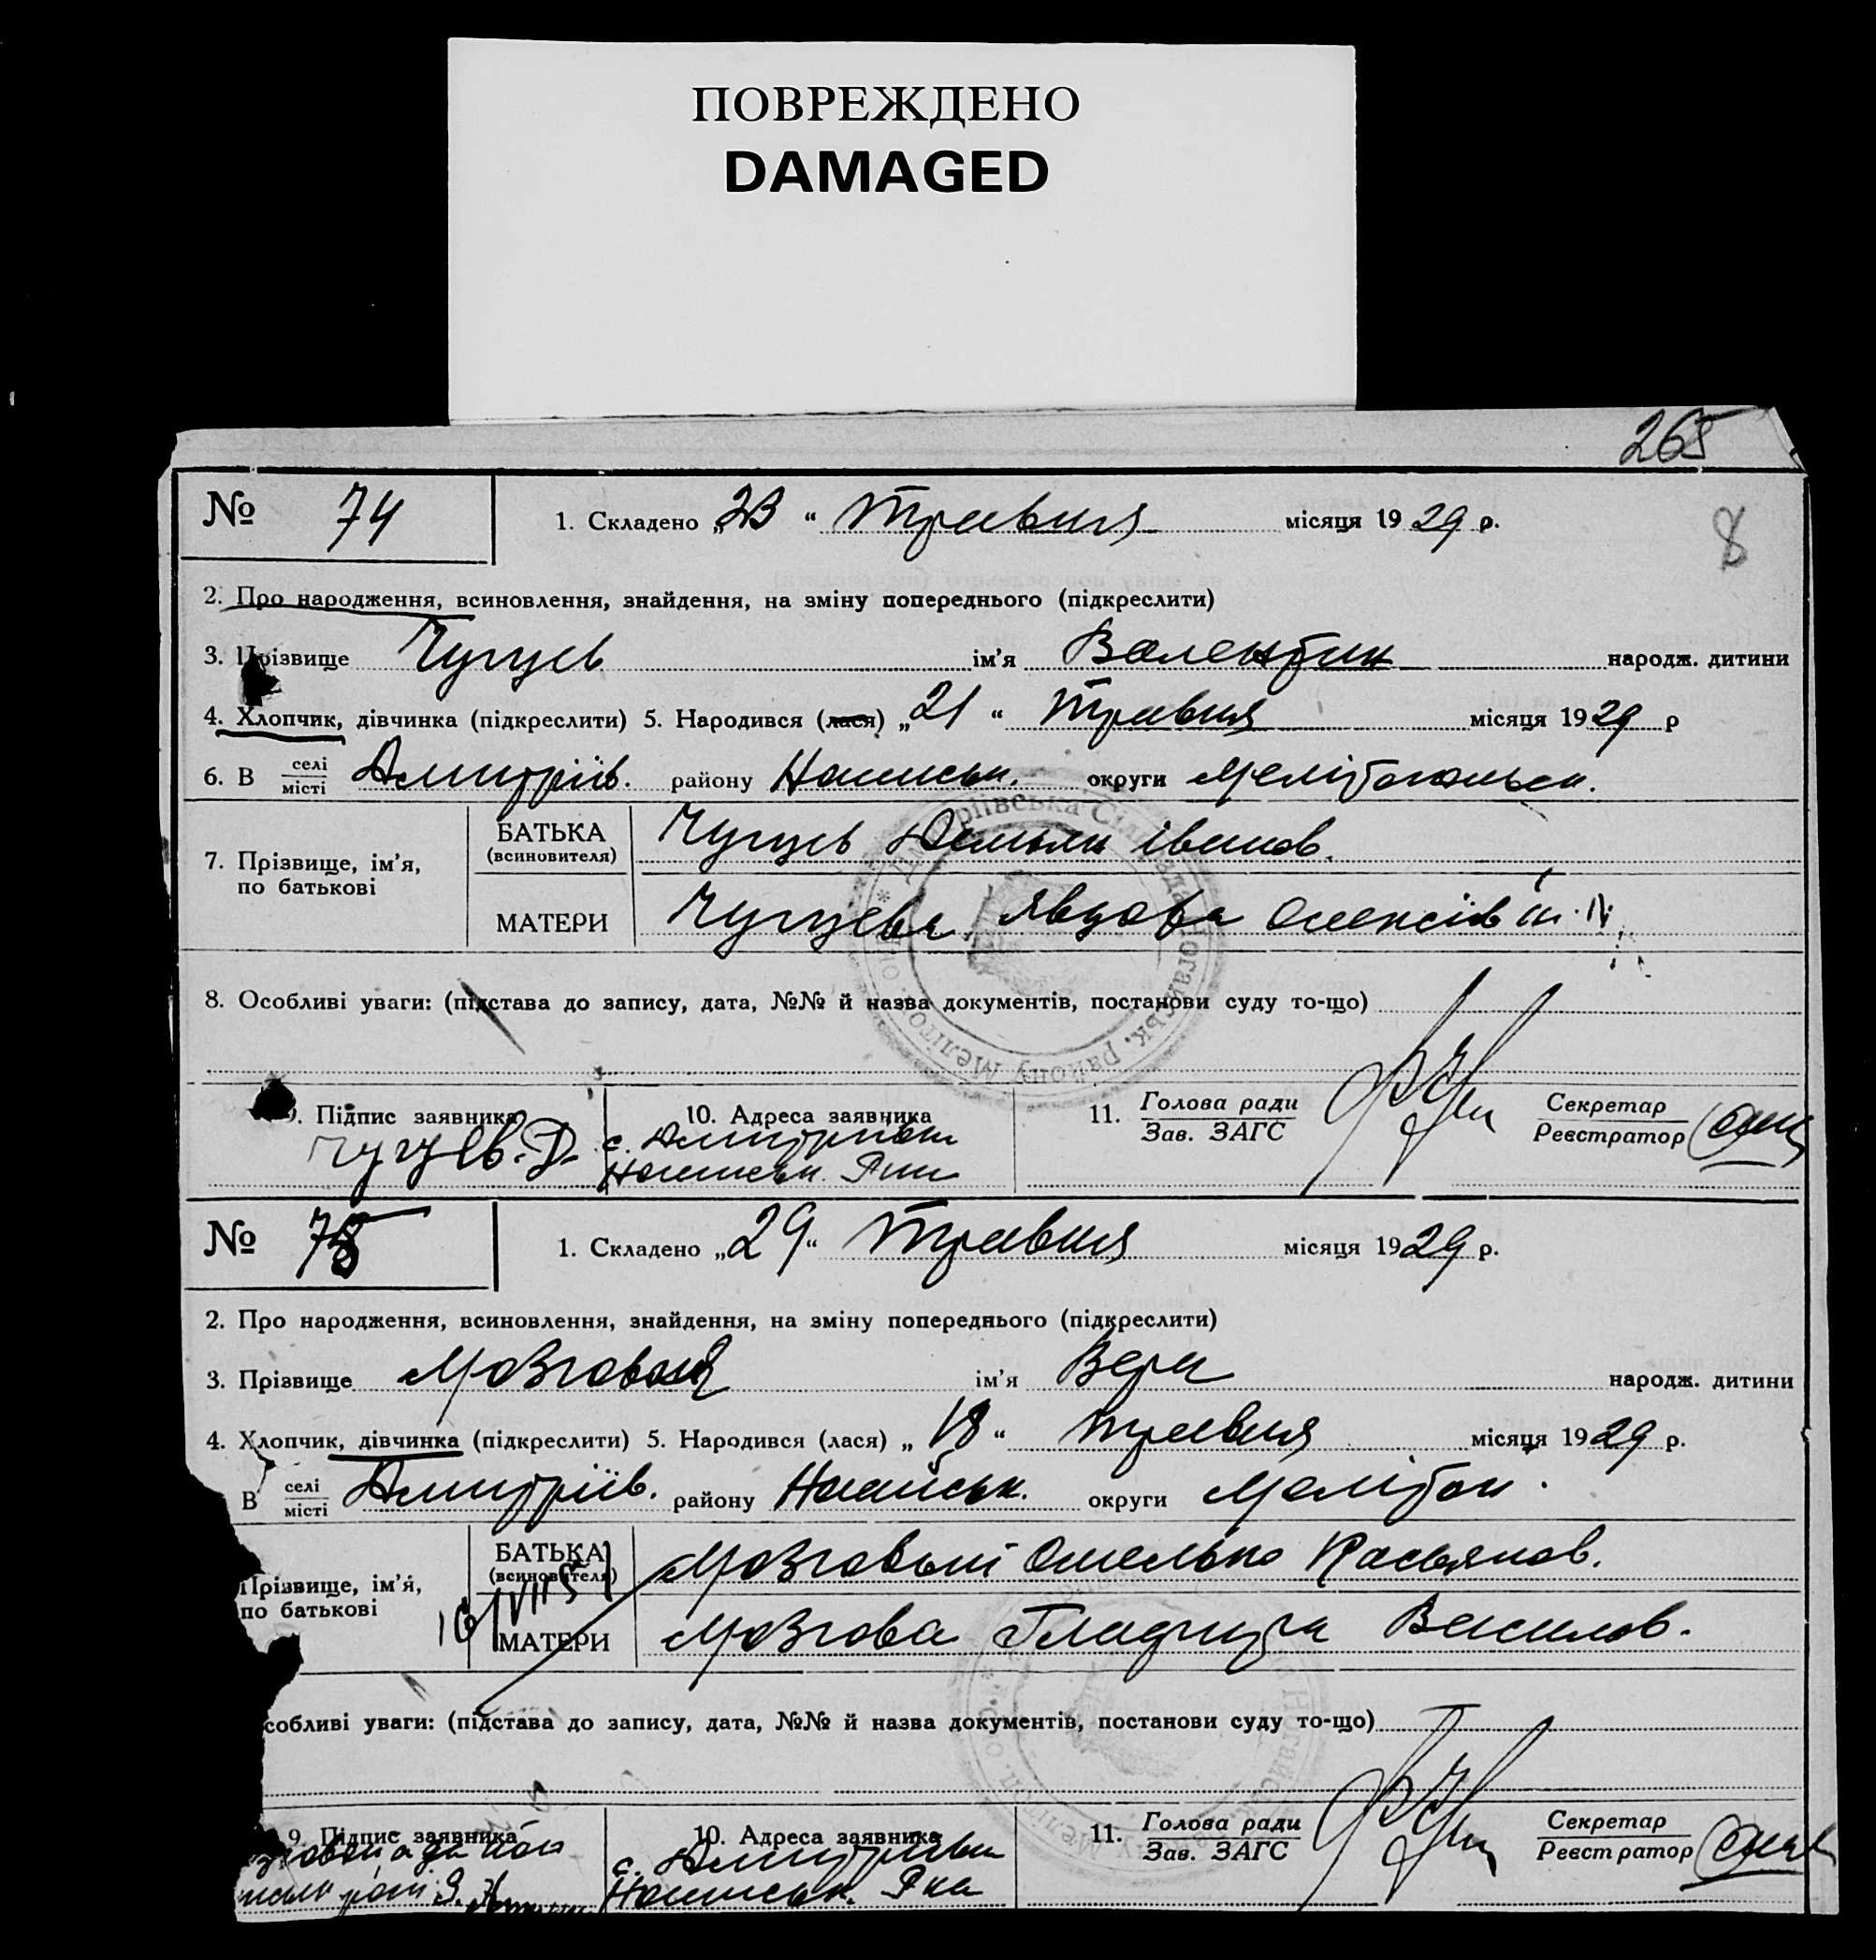 ПОВРЕЖДЕНО
DAMAGED
265
№ 74
1. Складено „23“ Травня місяця 1929 р.
8
2. Про народження, всиновлення, знайдення, на зміну попереднього (підкреслити)
3. Прізвище Чугуєв ім'я Валентин народж. дитини
4. Хлопчик, дівчинка (підкреслити) 5. Народився (лася) „21“ Травня місяця 1929 р
6. В селі місті Дмитріїв. районуНогайськ. округи Мелітопольск.
7. Прізвище, ім'я, по батькові
БАТЬКА (всиновителя) Чугуєв Демьян Іванов.
МАТЕРИ Чугуєва Явдоха Олексіїв
8. Особливі уваги: (підстава до запису, дата, №№ й назва документів, постанови суду то-що)
9. Підпис заявника Чугуєв. Д.
10. Адреса заявника с. Дмитрівки Ногайськ. Р-ну
11. Голова ради Зав. ЗАГС
Секретар Реєстратор
Дмитріївська Сільрада Ногайськ. району Меліто
№ 75
1. Складено „29“ Травня місяця 1929 р.
2. Про народження, всиновлення, знайдення, на зміну попереднього (підкреслити)
3. Прізвище Мозговая ім'я Вера народж. дитини
4. Хлопчик, дівчинка (підкреслити) 5. Народився (лася) „18“ Травня місяця 1929 р.
В селі місті Дмитріїв. району Ногайськ. округи Мелітоп.
Прізвище, ім'я, по батькові
БАТЬКА (всиновителя) Мозговый Омелько Касьянов.
МАТЕРИ Мозгова Василов.
собливі уваги: (підстава до запису, дата, №№ й назва документів, постанови суду то-що)
9. Підпис заявника
10. Адреса заявника с. Дмитрівки Ногайськ. Р-на
11. Голова ради Зав. ЗАГС
Секретар Реєстратор